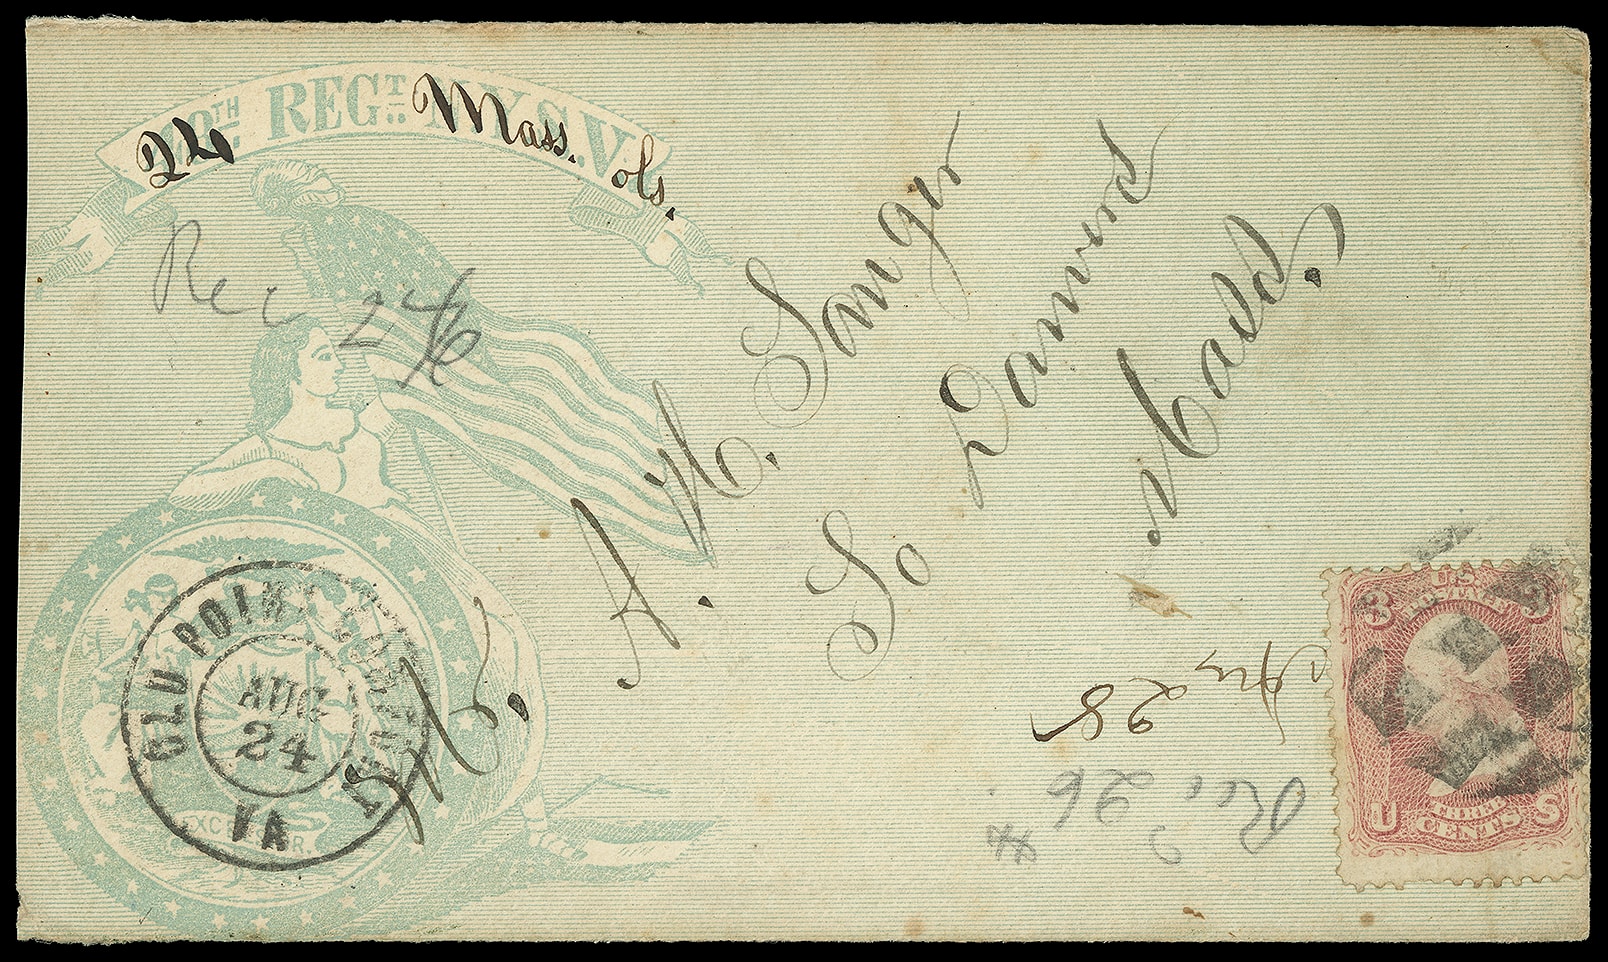 TH REGT. N.Y.S.V.
24 Mass. Vols.
Rec 24/6
A. H. Sanger
So Danvers
Mass.
GLO POINT
AUG
24
VA
U.S.
POSTAGE
3 3
U THREE S
CENTS
28
Rec 26